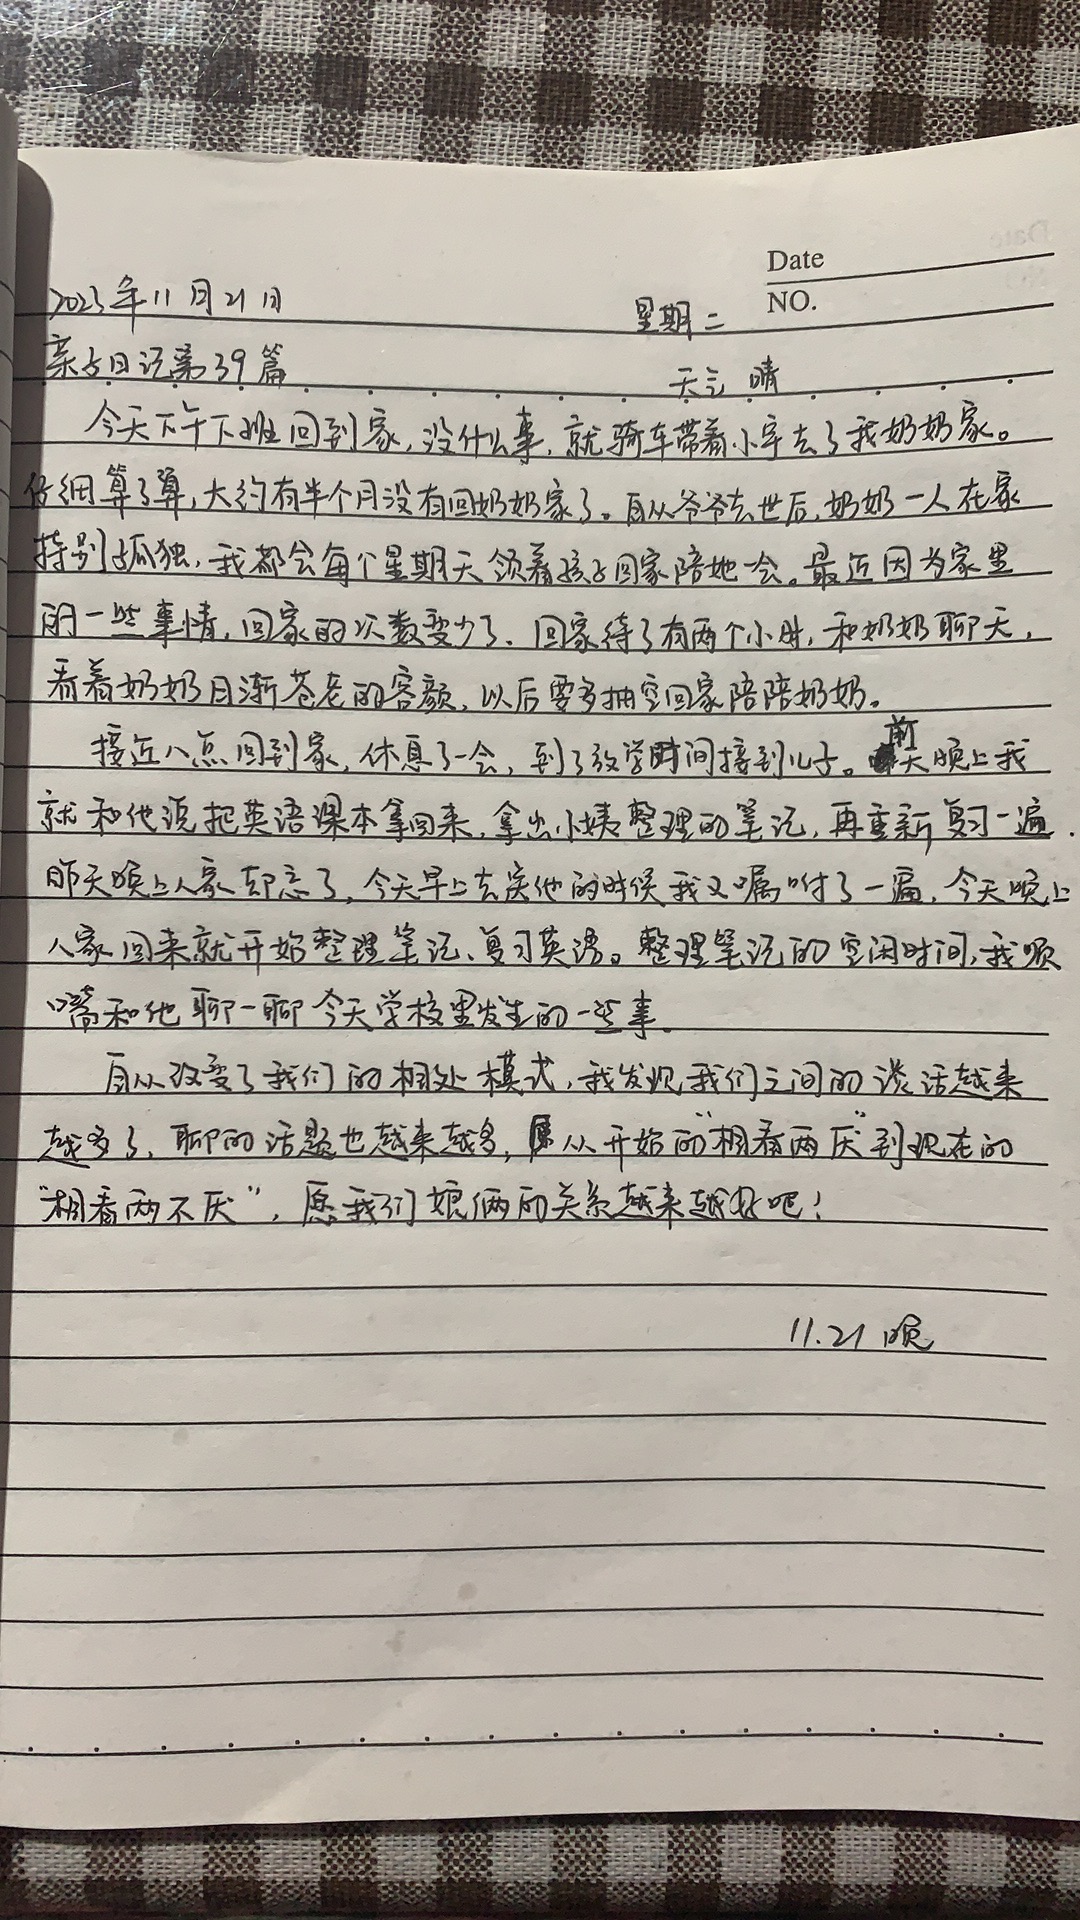 Date
2023年11月21日 星期二 NO.
亲子日记第39篇 天气 晴
今天下午下班回到家,没什么事,就骑车带着小宇去了我奶奶家。
仔细算了算,大约有半个月没有回奶奶家了。自从爷爷去世后,奶奶一人在家
特别孤独,我都会每个星期天领着孩子回家陪她一会。最近因为家里
的一些事情,回家的次数变少了、回家待了有两个小时,和奶奶聊天,
看着奶奶日渐苍老的容颜,以后要多抽空回家陪陪奶奶。
接近八点回到家,休息了一会,到了放学时间接到儿子。前天晚上我
就和他说把英语课本拿回来,拿出小姨整理的笔记,再重新复习一遍.
昨天晚上人家却忘了,今天早上去送他的时候我又嘱咐了一遍,今天晚上
人家回来就开始整理笔记、复习英语。整理笔记的空闲时间,我顺
嘴和他聊一聊今天学校里发生的一些事.
自从改变了我们的相处模式,我发现我们之间的谈话越来
越多了,聊的话题也越来越多,从开始的“相看两厌”到现在的
“相看两不厌”,愿我们娘俩的关系越来越好吧!
11.21 晚